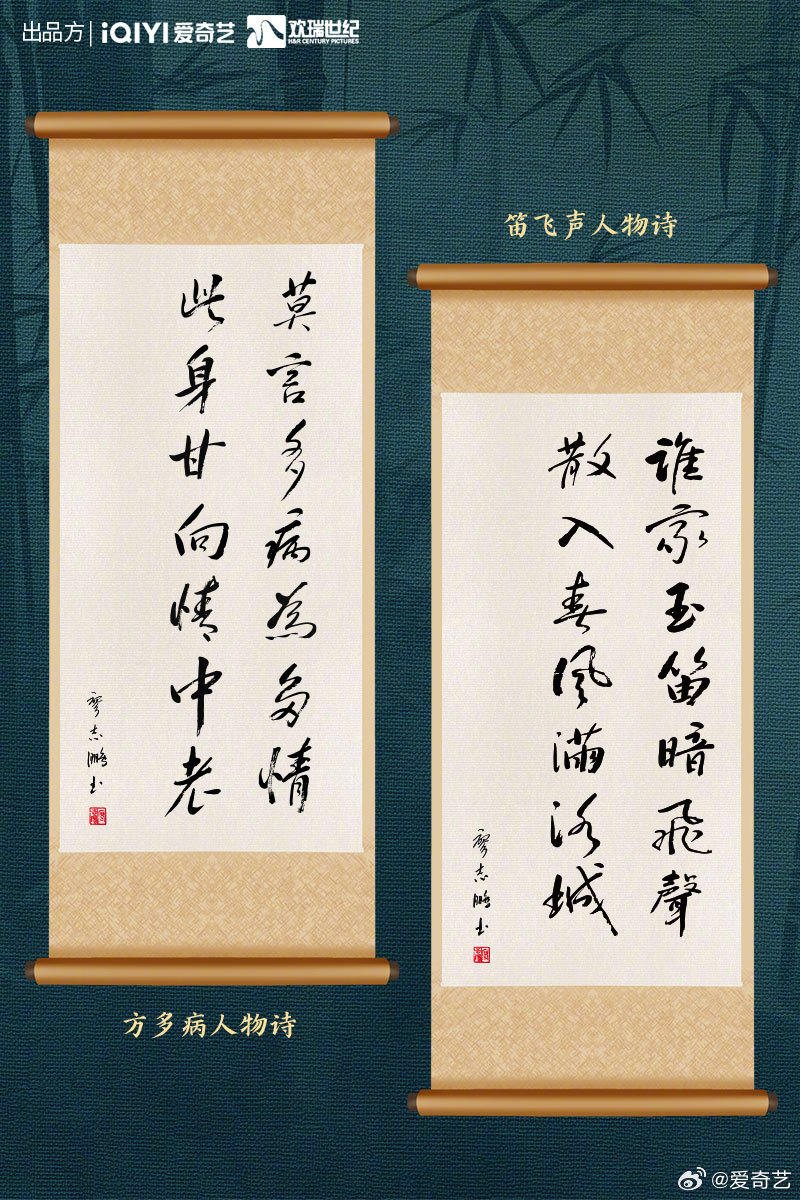 出品方 iQIYI 爱奇艺 欢瑞世纪
H&R CENTURY PICTURES
莫言多病為多情
此身甘向情中老
廖志鹏书
方多病人物诗
笛飞声人物诗
誰家玉笛暗飛聲
散入春風滿洛城
廖志鹏书
@爱奇艺